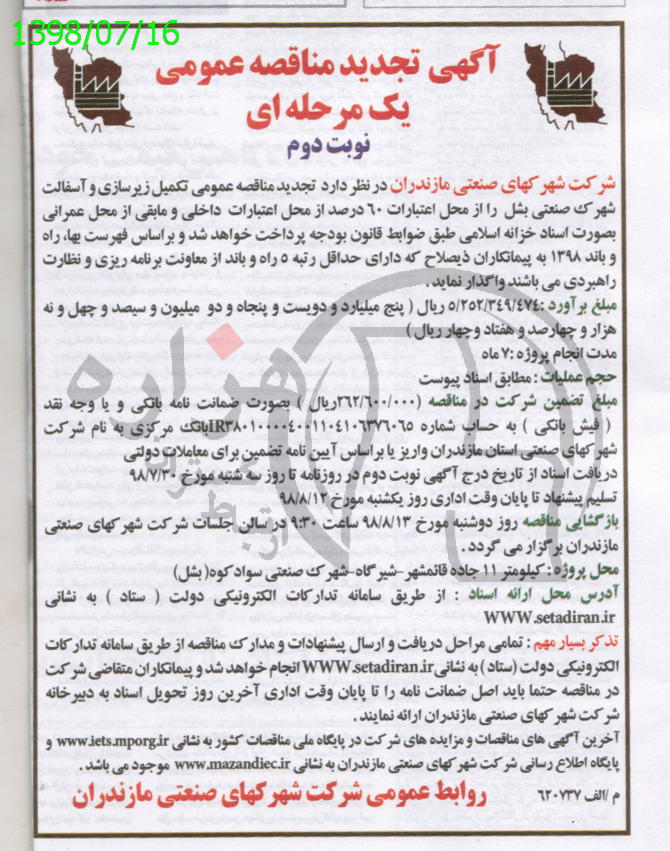 1398/07/16
آگهی تجدید مناقصه عمومی
یک مرحله ای
نوبت دوم
شرکت شهرکهای صنعتی مازندران در نظر دارد تجدید مناقصه عمومی تکمیل زیرسازی و آسفالت
شهرک صنعتی بشل را از محل اعتبارات ۶۰ درصد از محل اعتبارات داخلی و مابقی از محل عمرانی
بصورت اسناد خزانه اسلامی طبق ضوابط قانون بودجه پرداخت خواهد شد و براساس فهرست بهاء راه
و باند ۱۳۹۸ به پیمانکاران ذیصلاح که دارای حداقل رتبه ۵ راه و باند از معاونت برنامه ریزی و نظارت
راهبردی می باشند واگذار نماید.
مبلغ برآورد : ۵/۲۵۲/۳۴۹/۴۷۴ ریال ( پنج میلیارد و دویست و پنجاه و دو میلیون و سیصد و چهل و نه
هزار و چهارصد و هفتاد و چهار ریال )
مدت انجام پروژه : ۷ ماه
حجم عملیات : مطابق اسناد پیوست
مبلغ تضمین شرکت در مناقصه (۲۶۲/۶۰۰/۰۰۰ریال ) بصورت ضمانت نامه بانکی و یا وجه نقد
( فیش بانکی ) به حساب شماره IR۳۸۰۱۰۰۰۰۴۰۰۱۱۰۴۱۰۶۳۷۶۰۶۵بانک مرکزی به نام شرکت
شهرکهای صنعتی استان مازندران واریز یا براساس آیین نامه تضمین برای معاملات دولتی
دریافت اسناد از تاریخ درج آگهی نوبت دوم در روزنامه تا روز سه شنبه مورخ ۹۸/۷/۳۰
تسلیم پیشنهاد تا پایان وقت اداری روز یکشنبه مورخ ۹۸/۸/۱۲
بازگشایی مناقصه روز دوشنبه مورخ ۹۸/۸/۱۳ ساعت ۹:۳۰ در سالن جلسات شرکت شهرکهای صنعتی
مازندران برگزار می گردد .
محل پروژه : کیلومتر ۱۱ جاده قائمشهر -شیرگاه-شهرک صنعتی سوادکوه( بشل)
آدرس محل ارائه اسناد : از طریق سامانه تدارکات الکترونیکی دولت ( ستاد ) به نشانی
WWW.setadiran.ir
تذکر بسیار مهم : تمامی مراحل دریافت و ارسال پیشنهادات و مدارک مناقصه از طریق سامانه تدارکات
الکترونیکی دولت (ستاد) به نشانی WWW.setadiran.ir انجام خواهد شد و پیمانکاران متقاضی شرکت
در مناقصه حتما باید اصل ضمانت نامه را تا پایان وقت اداری آخرین روز تحویل اسناد به دبیرخانه
شرکت شهرکهای صنعتی مازندران ارائه نمایند .
آخرین آگهی های مناقصات و مزایده های شرکت در پایگاه ملی مناقصات کشور به نشانی www.iets.mporg.ir و
پایگاه اطلاع رسانی شرکت شهرکهای صنعتی مازندران به نشانی www.mazandiec.ir موجود می باشد .
م /الف ۶۲۰۷۳۷ روابط عمومی شرکت شهرکهای صنعتی مازندران
هزاره